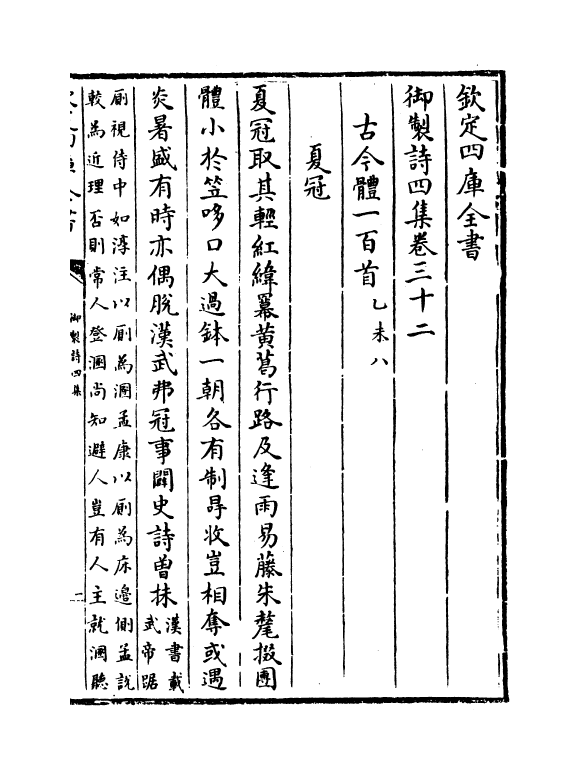 欽定四庫全書
御製詩四集卷三十二
古今體一百首乙未八
夏冠
夏冠取其輕紅緯羃黄葛行路及逢雨易藤朱氂掇團
體小於笠哆口大過鉢一朝各有制冔收豈相奪或遇
炎暑盛有時亦偶脱漢武弗冠事闢史詩曽抹漢書載武帝踞
厠視侍中如淳注以厠為溷孟康以厠為床邉側孟説
較為近理否則常人登溷尚知避人豈有人主就溷聽
御製詩四集